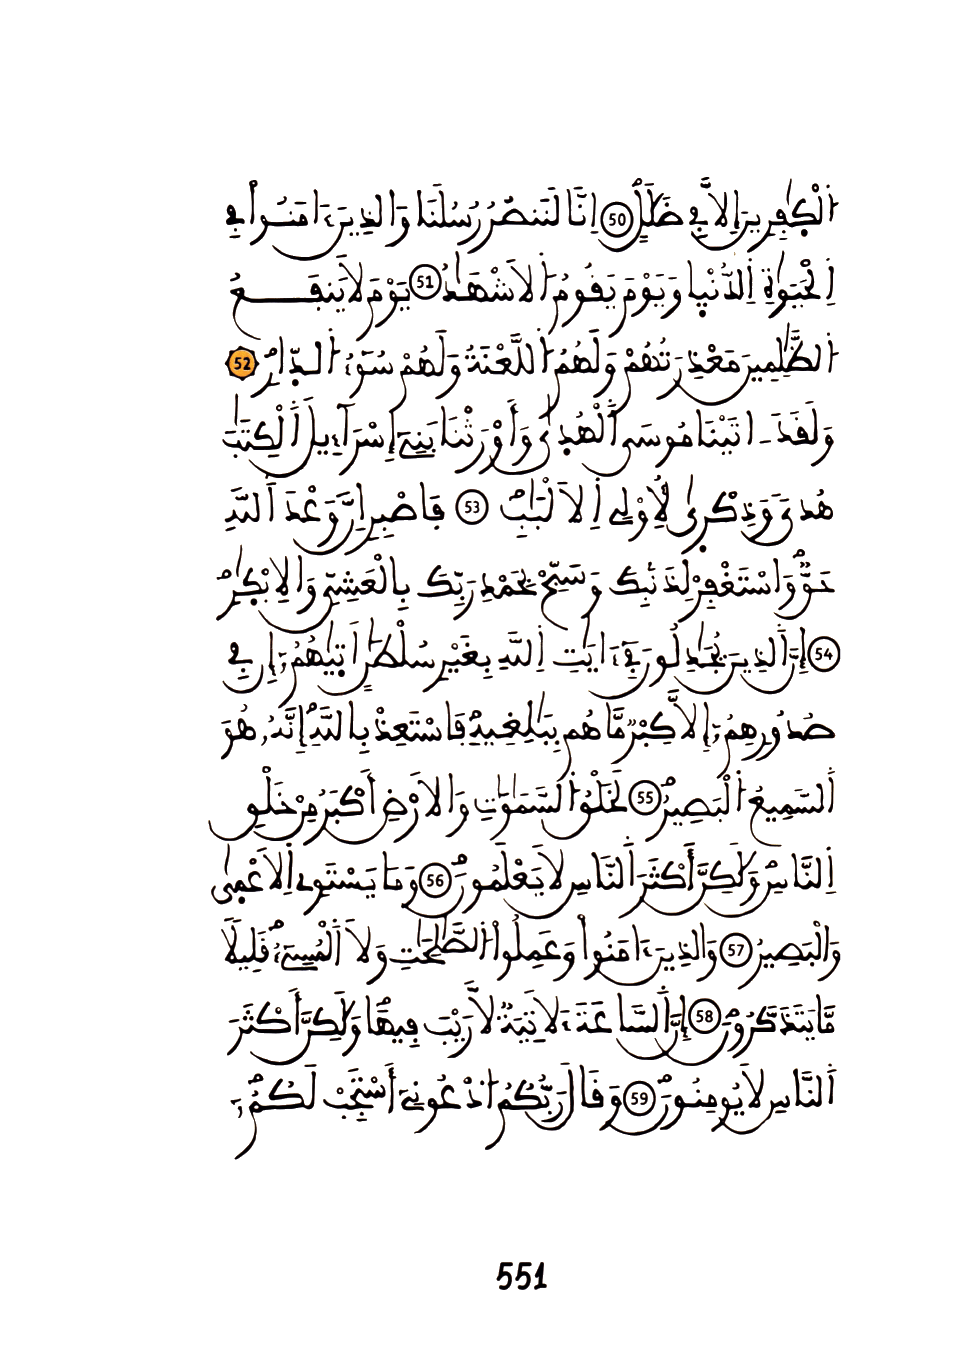 اَ۬لْكٰفِرِينَ إِلَّا فِے ضَلَٰلٍۖ 50 اِنَّا لَنَنصُرُ رُسُلَنَا وَالذِينَ ءَامَنُواْ فِے
اِ۬لْحَيَوٰةِ اِ۬لدُّنْيٖا وَيَوْمَ يَقُومُ اُ۬لَاشْهَٰدُ 51 يَوْمَ لَا يَنفَعُ
اُ۬لظَّٰلِمِينَ مَعْذِرَتُهُمْ وَلَهُمُ اُ۬للَّعْنَةُ وَلَهُمْ سُوٓءُ اُ۬لدّٖارِۖ 52
وَلَقَدَ اٰتَيْنَا مُوسَي اَ۬لْهُدٖىٰ وَأَوْرَثْنَا بَنِےٓ إِسْرَآءِيلَ اَ۬لْكِتَٰبَ
هُديٗ وَذِكْرٖىٰ لِأُوْلِے اِ۬لَالْبَٰبِۖ 53 فَاصْبِرِ اِنَّ وَعْدَ اَ۬للَّهِ
حَقّٞۖ وَاسْتَغْفِرْ لِذَنۢبِكَ وَسَبِّحْ بِحَمْدِ رَبِّكَ بِالْعَشِيِّ وَالِابْكٰرِۖ
54 إِنَّ اَ۬لذِينَ يُجَٰدِلُونَ فِےٓ ءَايَٰتِ اِ۬للَّهِ بِغَيْرِ سُلْطَٰنٍ اَتٖيٰهُمُۥٓ إِن فِے
صُدُورِهِمُۥٓ إِلَّا كِبْرٞ مَّا هُم بِبَٰلِغِيهِۖ فَاسْتَعِذْ بِاللَّهِۖ إِنَّهُۥ هُوَ
اَ۬لسَّمِيعُ اُ۬لْبَصِيرُۖ 55 لَخَلْقُ اُ۬لسَّمَٰوَٰتِ وَالَارْضِ أَكْبَرُ مِنْ خَلْقِ
اِ۬لنَّاسِۖ وَلَٰكِنَّ أَكْثَرَ اَ۬لنَّاسِ لَا يَعْلَمُونَۖ 56 وَمَا يَسْتَوِے اِ۬لَاعْمٖىٰ
وَالْبَصِيرُ 57 وَالذِينَ ءَامَنُواْ وَعَمِلُواْ اُ۬لصَّٰلِحَٰتِ وَلَا اَ۬لْمُسِےٓءُۖ قَلِيلاٗ
مَّا يَتَذَكَّرُونَۖ 58 إِنَّ اَ۬لسَّاعَةَ ءَلَاتِيَةٞ لَّا رَيْبَ فِيهَاۖ وَلَٰكِنَّ أَكْثَرَ
اَ۬لنَّاسِ لَا يُومِنُونَۖ 59 وَقَالَ رَبُّكُمُ اُ۟دْعُونِےٓ أَسْتَجِبْ لَكُمُۥٓۖ
551